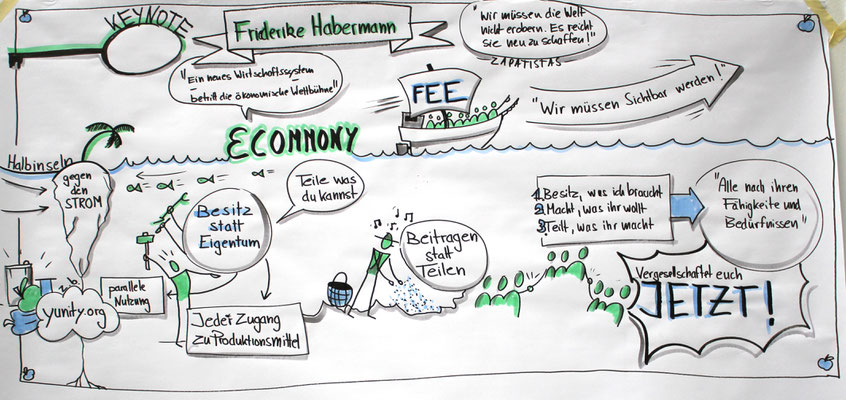 KEYNOTE
Friderike Habermann
"Wir müssen die Welt
nicht erobern. Es reicht
sie neu zu schaffen!"
ZAPATISTAS
"Ein neues Wirtschaftssystem
betritt die ökonomische Weltbühne"
FEE
"Wir müssen Sichtbar werden!"
ECOMMONY
Halbinseln
gegen
den
STROM
Besitz
statt
Eigentum
Teile was
du kannst
Beitragen
statt
Teilen
1. Besitz, was ich braucht
2. Macht, was ihr wollt
3. Teilt, was ihr macht
"Alle nach ihren
Fähigkeite und
Bedürfnissen"
parallele
Nutzung
yunity.org
Jeder Zugang
zu Produktionsmittel
Vergesellschaftet euch
JETZT!